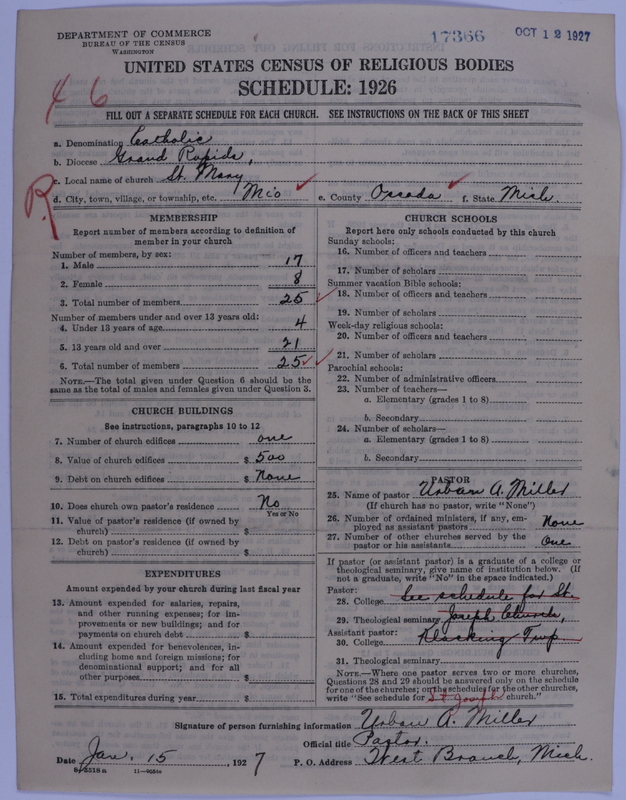 DEPARTMENT OF COMMERCE
BUREAU OF THE CENSUS
WASHINGTON
17366
OCT 12 1927
UNITED STATES CENSUS OF RELIGIOUS BODIES
SCHEDULE: 1926
46
FILL OUT A SEPARATE SCHEDULE FOR EACH CHURCH. SEE INSTRUCTIONS ON THE BACK OF THIS SHEET
a. Denomination Catholic
b. Diocese Grand Rapids,
c. Local name of church St. Mary
R.
d. City, town, village, or township, etc. Mio e. County Oscoda f. State Mich.
MEMBERSHIP
Report number of members according to definition of
member in your church
Number of members, by sex:
1. Male 17
2. Female 8
3. Total number of members 25
Number of members under and over 13 years old:
4. Under 13 years of age 4
5. 13 years old and over 21
6. Total number of members 25
NOTE.—The total given under Question 6 should be the
same as the total of males and females given under Question 3.
CHURCH BUILDINGS
See instructions, paragraphs 10 to 12
7. Number of church edifices one
8. Value of church edifices $ 500
9. Debt on church edifices $ None
10. Does church own pastor's residence No
Yes or No
11. Value of pastor's residence (if owned by
church) $
12. Debt on pastor's residence (if owned by
church) $
EXPENDITURES
Amount expended by your church during last fiscal year
13. Amount expended for salaries, repairs,
and other running expenses; for im-
provements or new buildings; and for
payments on church debt $
14. Amount expended for benevolences, in-
cluding home and foreign missions; for
denominational support; and for all
other purposes $
15. Total expenditures during year $
CHURCH SCHOOLS
Report here only schools conducted by this church
Sunday schools:
16. Number of officers and teachers
17. Number of scholars
Summer vacation Bible schools:
18. Number of officers and teachers
19. Number of scholars
Week-day religious schools:
20. Number of officers and teachers
21. Number of scholars
Parochial schools:
22. Number of administrative officers
23. Number of teachers—
a. Elementary (grades 1 to 8)
b. Secondary
24. Number of scholars—
a. Elementary (grades 1 to 8)
b. Secondary
PASTOR
25. Name of pastor Urban A. Miller
(If church has no pastor, write "None")
26. Number of ordained ministers, if any, em-
ployed as assistant pastors None
27. Number of other churches served by the
pastor or his assistants One
If pastor (or assistant pastor) is a graduate of a college or
theological seminary, give name of institution below. (If
not a graduate, write "No" in the space indicated.)
Pastor:
28. College See schedule for St.
29. Theological seminary Joseph Church,
Assistant pastor:
30. College Klacking Twp.
31. Theological seminary
NOTE.—Where one pastor serves two or more churches,
Questions 28 and 29 should be answered only on the schedule
for one of the churches; on the schedules for the other churches,
write "See schedule for St Joseph church."
Signature of person furnishing information Urban A. Miller
Official title Pastor.
Date Jan. 15, 1927 P. O. Address West Branch, Mich.